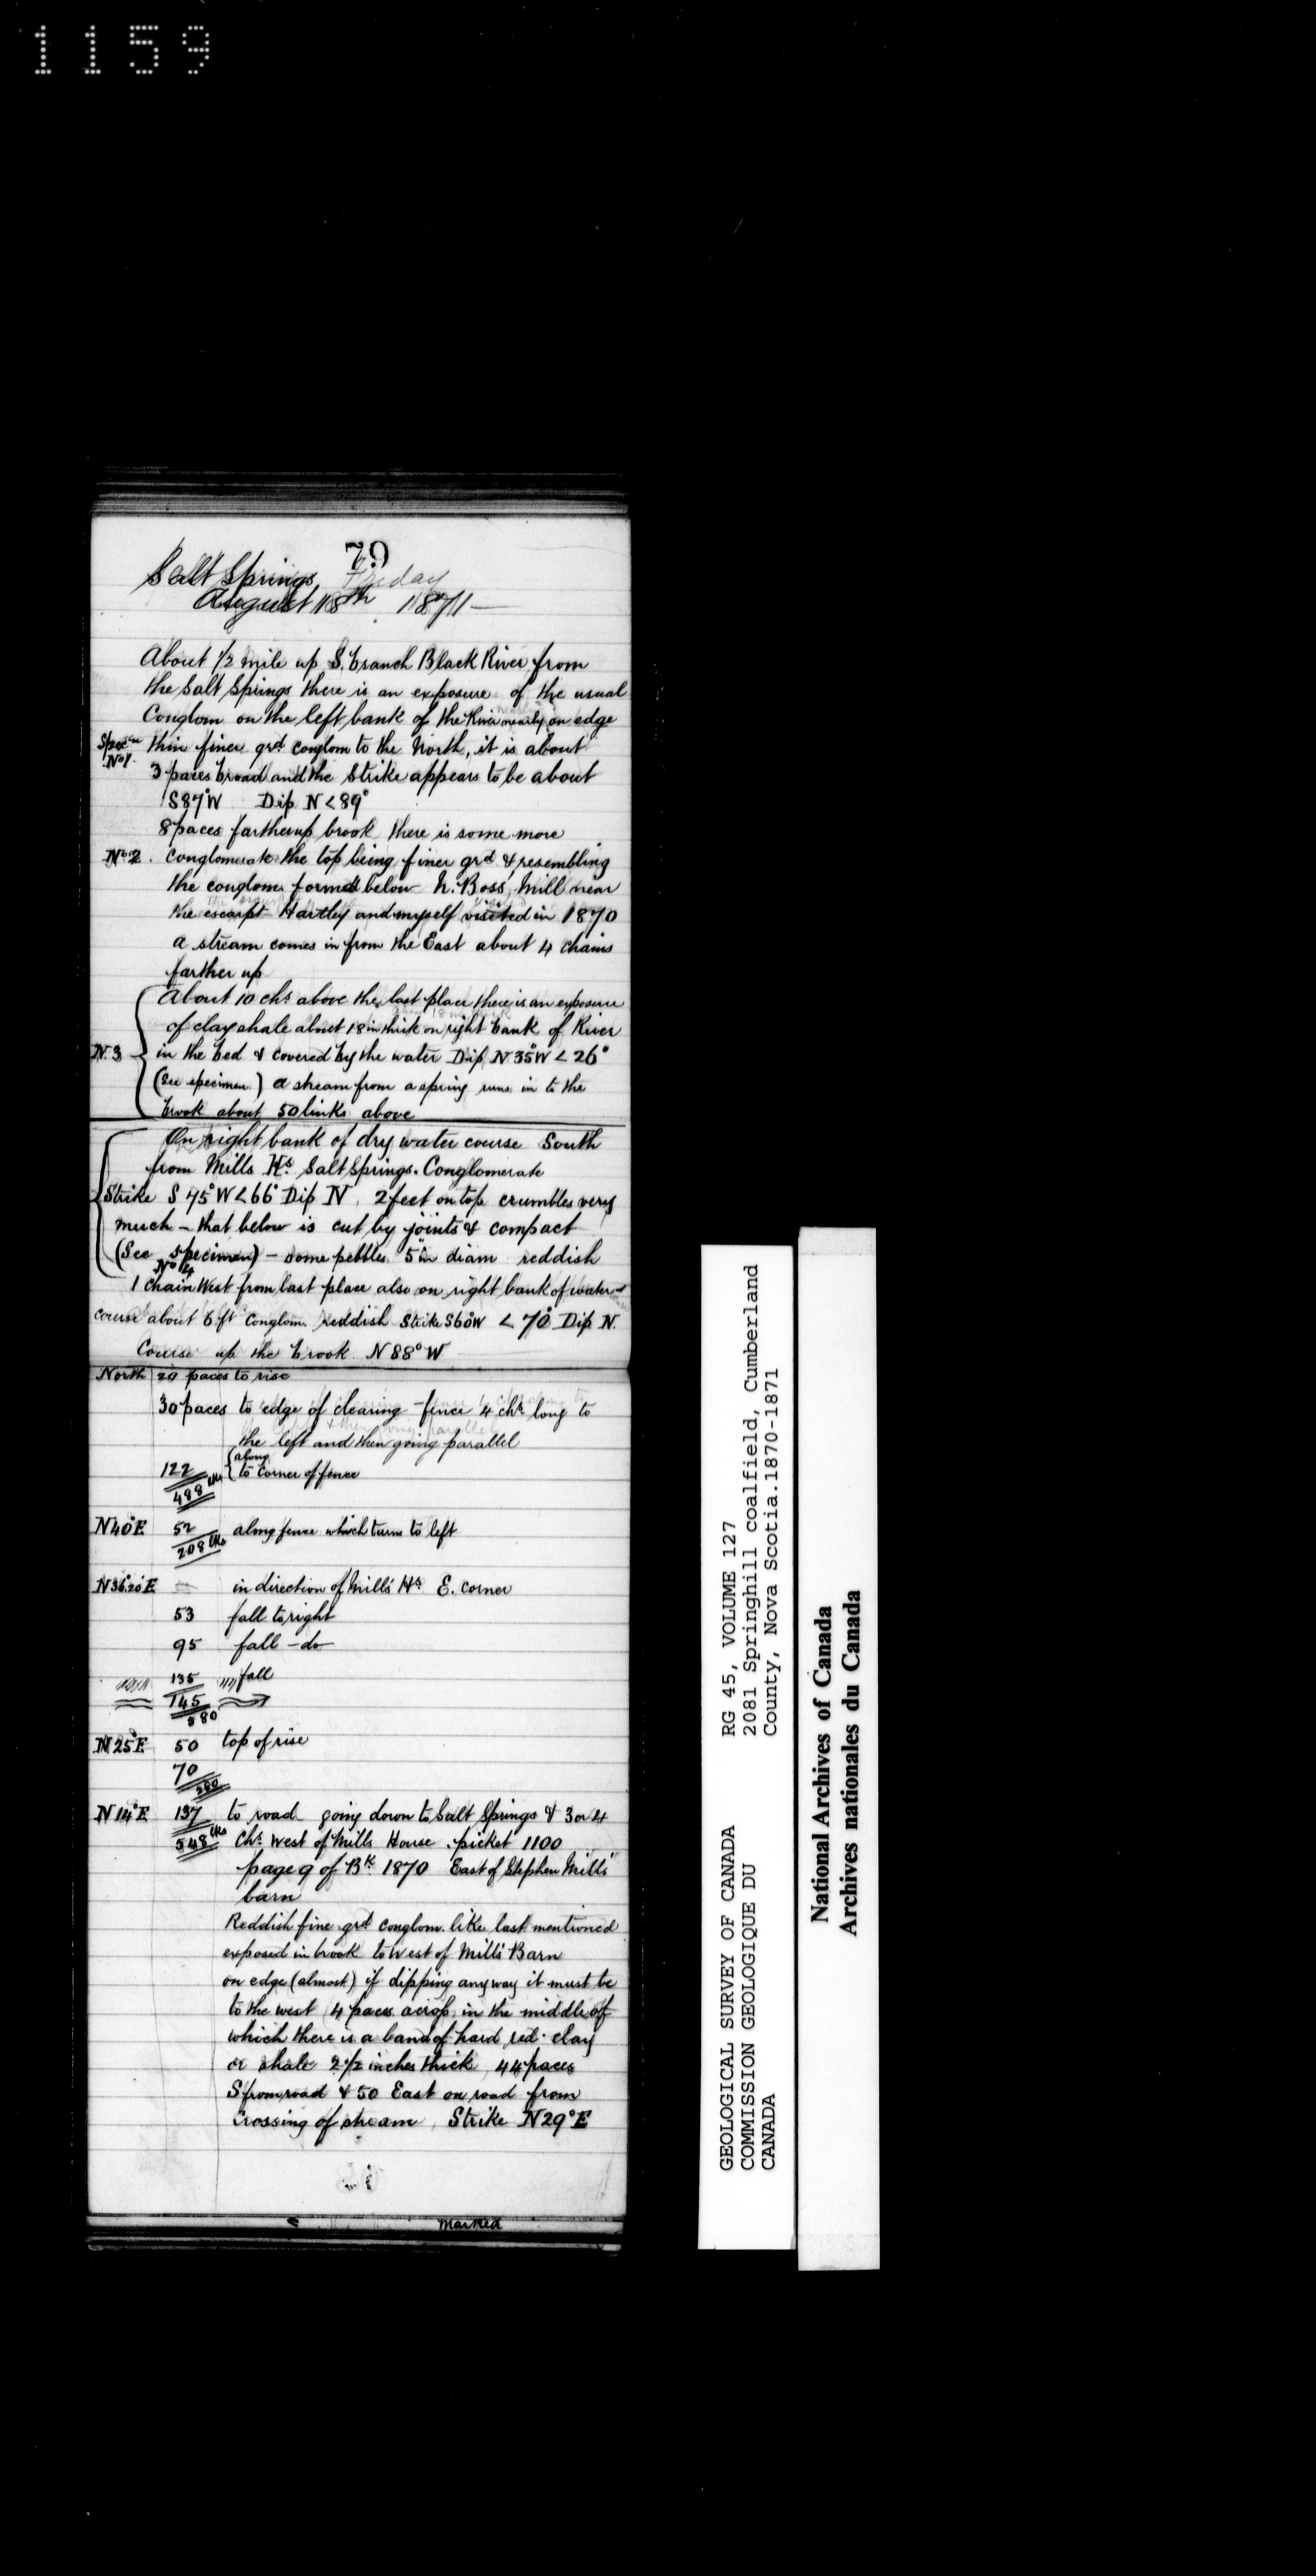 1159
79
Salt Springs Friday
August 18th 1871—
About 1/2 mile up S. branch Black River from
the Salt Springs there is an exposure of the usual
Conglom on the left bank of the River nearly on edge
Specmn No 1. thin finer grd conglom to the North, it is about
3 paces broad and the Strike appears to be about
S87°W Dip N<89°
8 paces farther up brook there is some more
No. 2. Conglomerate the top being finer grd & resembling
the conglom formd below N. Boss' Mill near
the escarpt Hartley and myself visited in 1870
a stream comes in from the East about 4 chains
farther up
About 10 chs above the last place there is an exposure
of clay shale about 18 in thick on right bank of River
N. 3 in the bed & covered by the water Dip N35°W<26°
(See specimen) a stream from a spring runs in to the
brook about 50 links above
On right bank of dry water course South
from Mills Hs. Salt Springs. Conglomerate
Strike S 45°W<66° Dip N, 2 feet on top crumbles very
much – that below is cut by joints & compact
(See specimen) – some pebbles 5 in diam reddish
No 4
1 chain West from last place also on right bank of water
course about 6 ft Conglom. reddish Strike S60°W <70° Dip N.
Course up the brook N88°W
North 29 paces to rise
30 paces to edge of clearing – fence 4 chs long to
the left and then going parallel
along
122 to corner of fence
488 lks
N40°E 52 along fence which turns to left
208 lks
N36°20'E in direction of Mills Hs E. corner
53 fall to right
95 fall – do
135 fall
145
580
N25°E 50 top of rise
70
280
N14°E 137 to road going down to Salt Springs & 3 or 4
548 lks chs West of Mills House. picket 1100
page 9 of Bk 1870 East of Stephen Mills'
barn
Reddish fine grd conglom. like last mentioned
exposed in brook to West of Mills Barn
on edge (almost) if dipping any way it must be
to the west 4 paces across, in the middle of
which there is a band of hard red clay
or shale 2 1/2 inches thick, 44 paces
S from road & 50 East on road from
Crossing of stream, Strike N29°E
marked
GEOLOGICAL SURVEY OF CANADA
COMMISSION GEOLOGIQUE DU
CANADA
RG 45, VOLUME 127
2081 Springhill coalfield, Cumberland
County, Nova Scotia.1870-1871
National Archives of Canada
Archives nationales du Canada